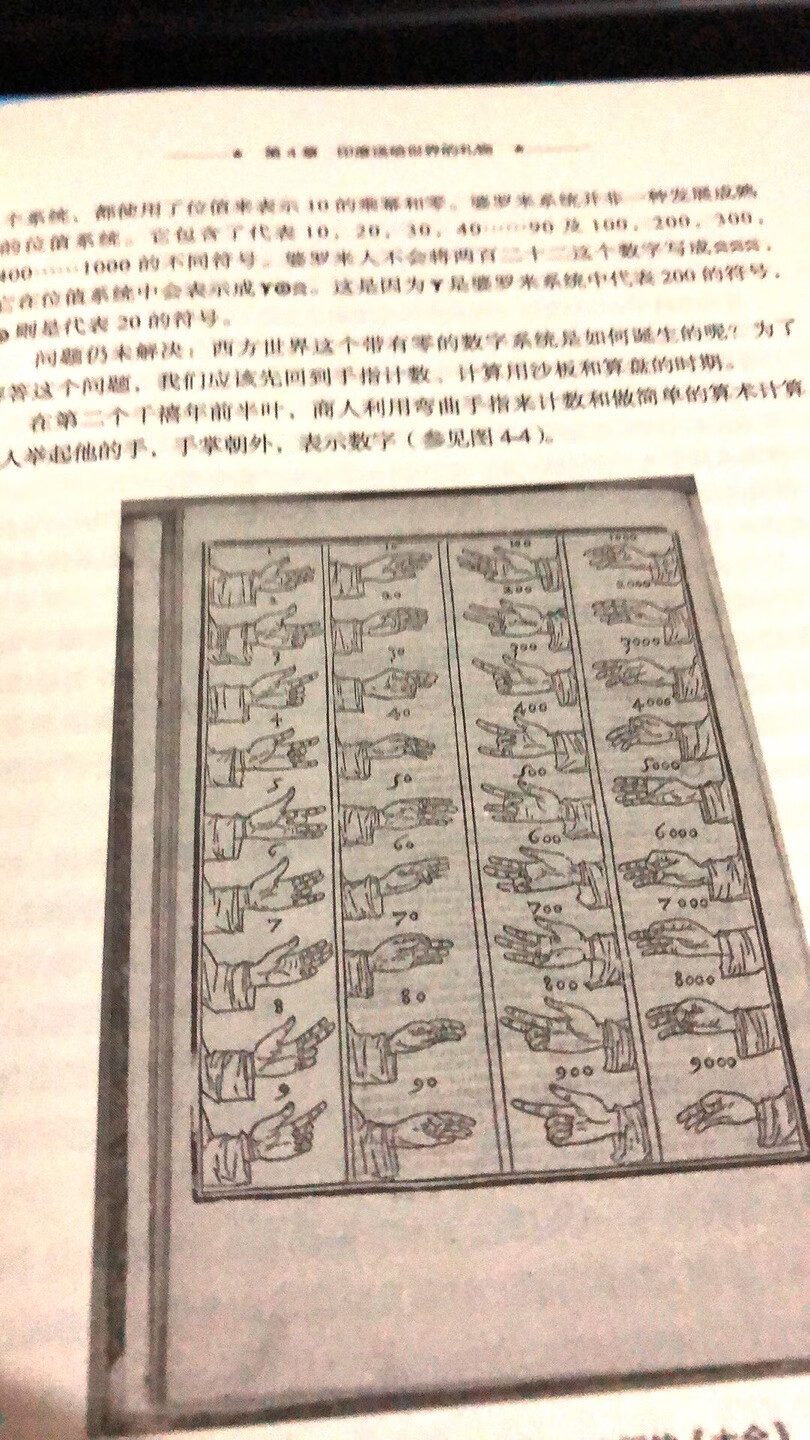 第4章 印度送给世界的礼物
个系统，都使用了位值来表示10的乘幂和零。婆罗米系统并非一种发展成熟
的位值系统。它包含了代表10，20，30，40……90及100，200，300，
400……1000的不同符号。婆罗米人不会将两百二十二这个数字写成
在位值系统中会表示成 。这是因为 是婆罗米系统中代表200的符号，
则是代表20的符号。
问题仍未解决：西方世界这个带有零的数字系统是如何诞生的呢？为了
答这个问题，我们应该先回到手指计数、计算用沙板和算盘的时期。
在第二个千禧年前半叶，商人利用弯曲手指来计数和做简单的算术计算
人举起他的手，手掌朝外，表示数字（参见图4-4）。
1 10 100 1000
2 20 200 2000
3 30 300 3000
4 40 400 4000
5 50 500 5000
6 60 600 6000
7 70 700 7000
8 80 800 8000
9 90 900 9000